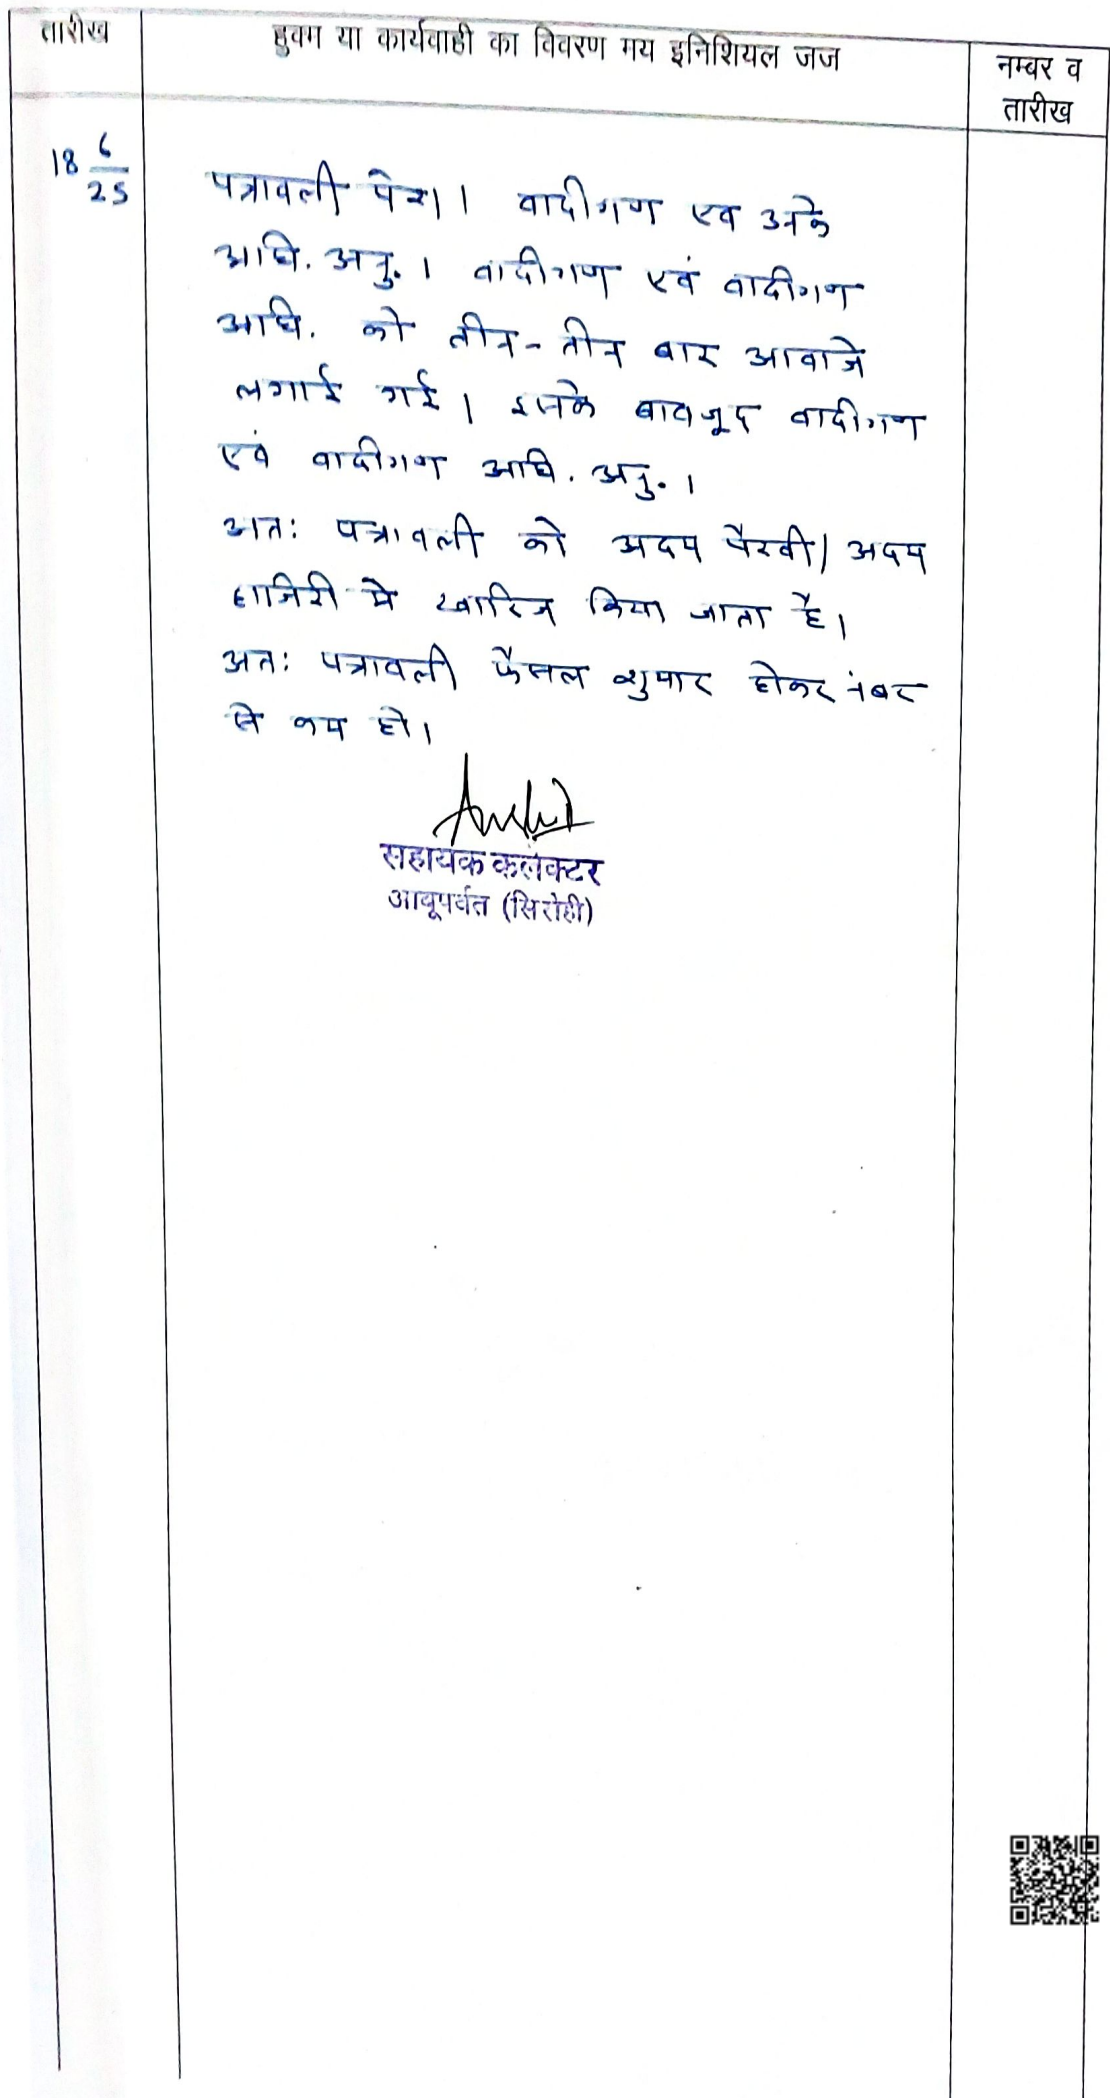 तारीख
हुक्म या कार्यवाही का विवरण मय इनिशियल जज
नम्बर व
तारीख
18 6/25
पत्रावली पेश। वादीगण एव उनके
अधि. अनु.। वादीगण एवं वादीगण
अधि. को तीन-तीन बार आवाजे
लगाई गई। इसके बावजूद वादीगण
एवं वादीगण अधि. अनु.।
अतः पत्रावली को अदम पैरवी/अदम
हाजिरी मे खारिज किया जाता है।
अतः पत्रावली फैसल शुमार होकर नंबर
से कम हो।
सहायक कलेक्टर
आबूपर्वत (सिरोही)